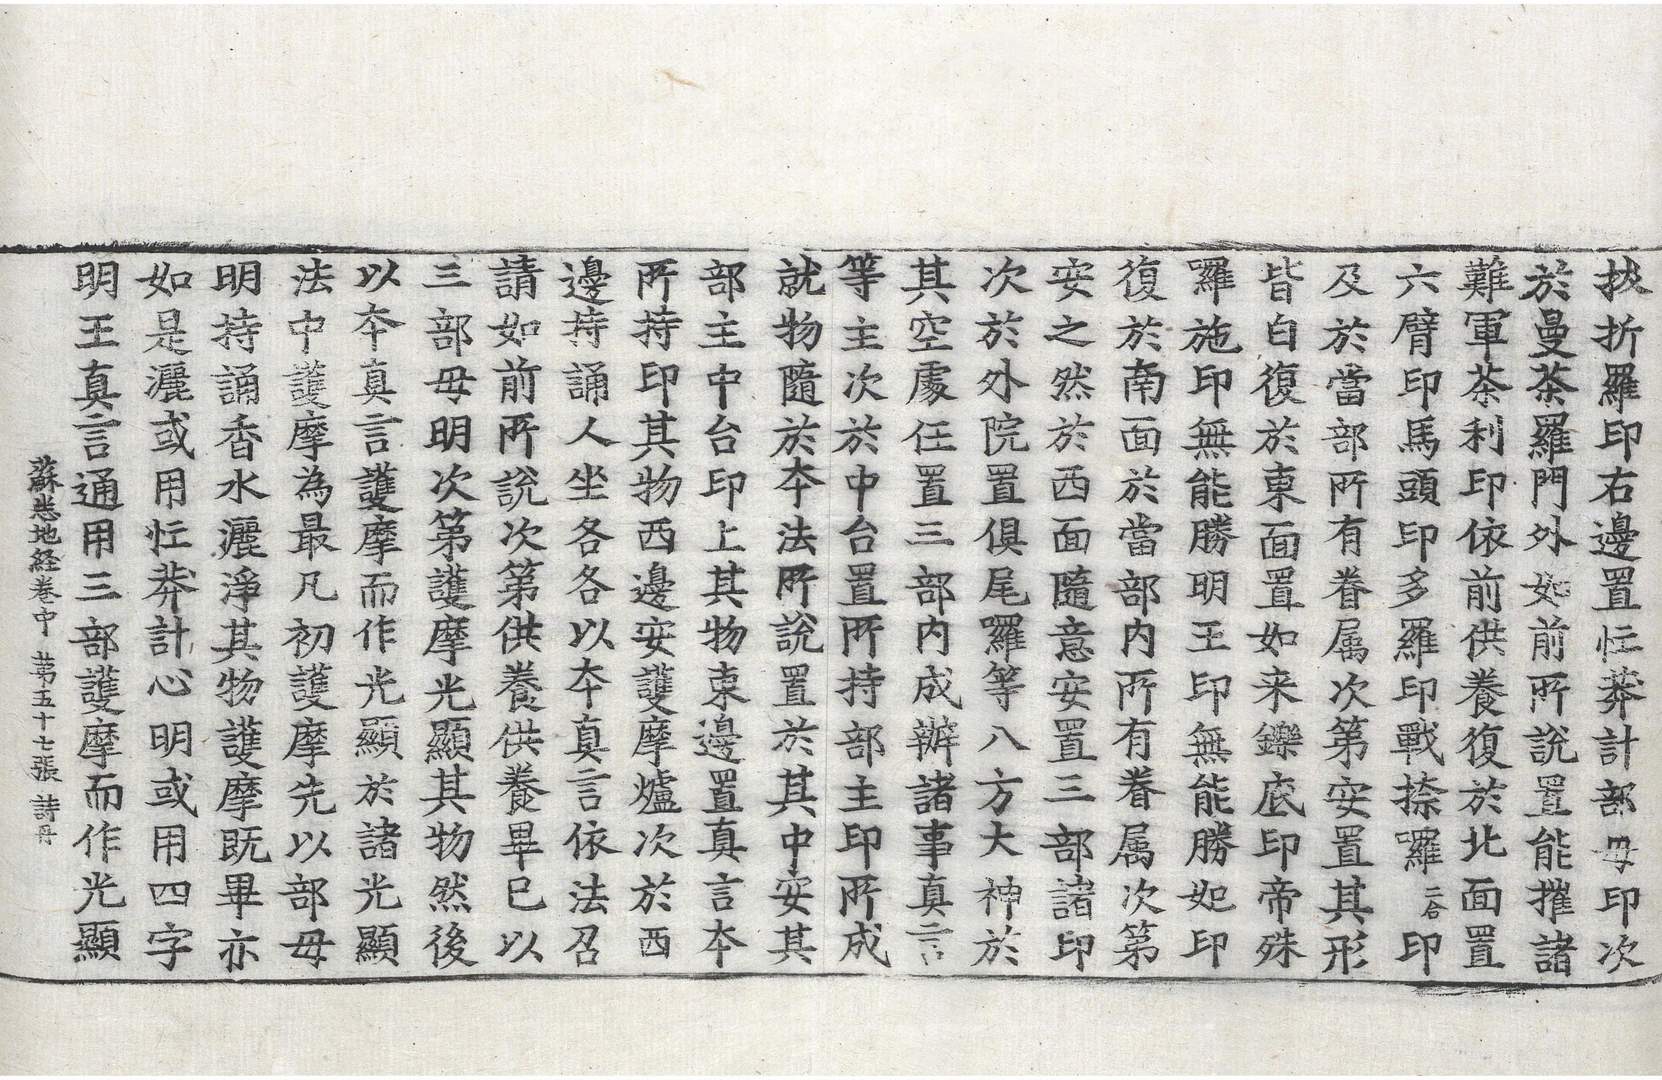 拔折羅印右邊置忙莽計部毋印次
於曼茶羅門外如前所說置能摧諸
難軍茶利印依前供養復於北面置
六臂印馬頭印多羅印戰捺囉二合印
及於當部所有眷属次第安置其形
皆白復於東面置如来鑠底印帝殊
羅施印無能勝明王印無能勝妃印
復於南面於當部內所有眷属次第
安之然於西面隨意安置三部諸印
次於外院置俱尾囉等八方大神於
其空處任置三部內成辦諸事真言
等主次於中台置所持部主印所成
就物隨於本法所說置於其中安其
部主中台印上其物東邊置真言本
所持印其物西邊安護摩爐次於西
邊持誦人坐各各以本真言依法召
請如前所說次第供養供養畢已以
三部毋明次第護摩光顯其物然後
以本真言護摩而作光顯於諸光顯
法中護摩為最凡初護摩先以部毋
明持誦香水灑淨其物護摩既畢亦
如是灑或用忙莽計心明或用四字
明王真言通用三部護摩而作光顯
蘇悉地経卷中 第五十七張 詩号